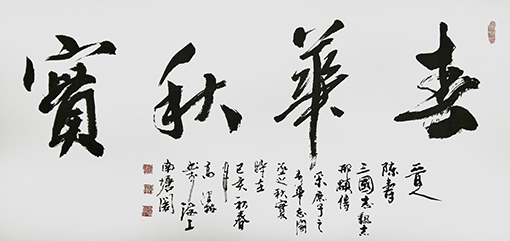 春華秋實
晉人
陳壽
三國志魏志
邢顒傳
采庶子之
春華忘家
丞之秋實
時在
己亥初春
南塘閣